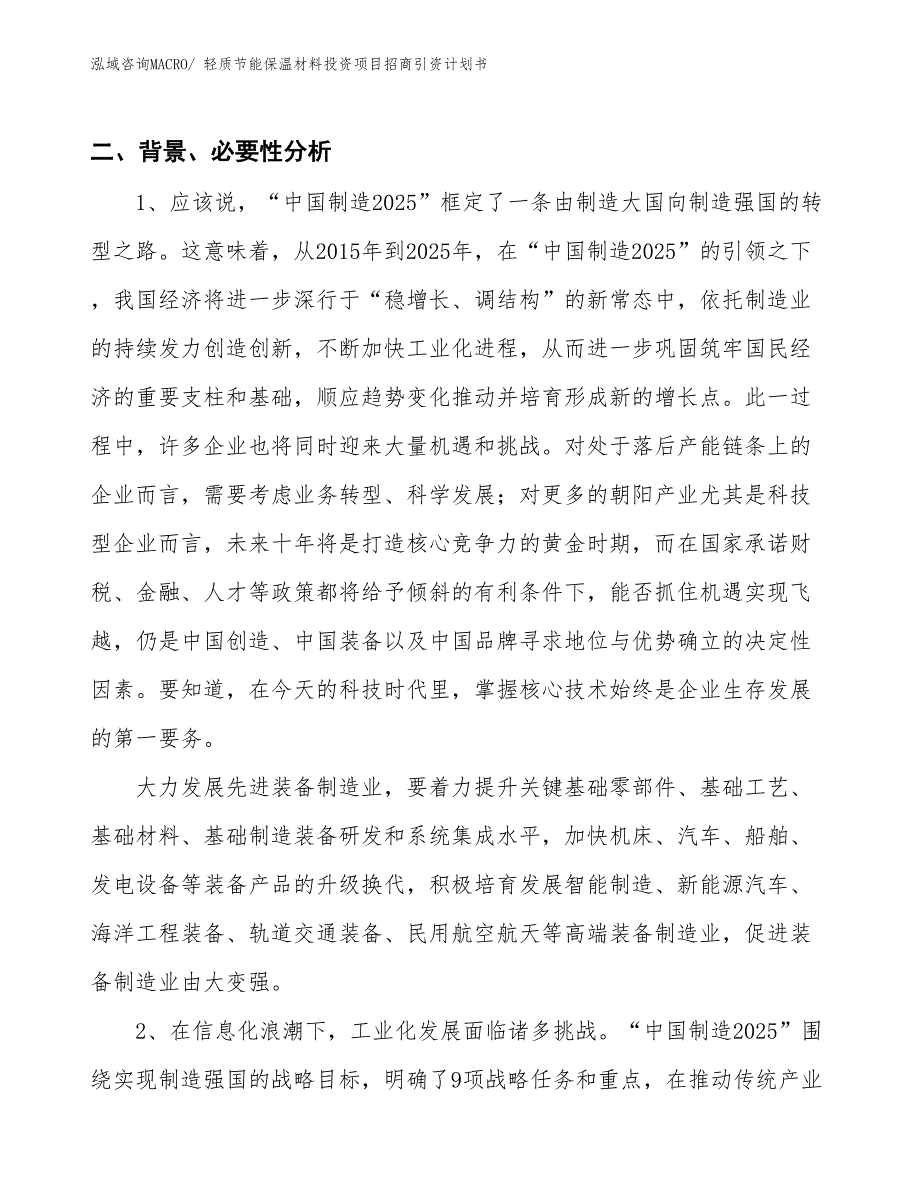 泓域咨询MACRO/ 轻质节能保温材料投资项目招商引资计划书
二、背景、必要性分析
1、应该说，“中国制造2025”框定了一条由制造大国向制造强国的转
型之路。这意味着，从2015年到2025年，在“中国制造2025”的引领之下
，我国经济将进一步深行于“稳增长、调结构”的新常态中，依托制造业
的持续发力创造创新，不断加快工业化进程，从而进一步巩固筑牢国民经
济的重要支柱和基础，顺应趋势变化推动并培育形成新的增长点。此一过
程中，许多企业也将同时迎来大量机遇和挑战。对处于落后产能链条上的
企业而言，需要考虑业务转型、科学发展；对更多的朝阳产业尤其是科技
型企业而言，未来十年将是打造核心竞争力的黄金时期，而在国家承诺财
税、金融、人才等政策都将给予倾斜的有利条件下，能否抓住机遇实现飞
越，仍是中国创造、中国装备以及中国品牌寻求地位与优势确立的决定性
因素。要知道，在今天的科技时代里，掌握核心技术始终是企业生存发展
的第一要务。
大力发展先进装备制造业，要着力提升关键基础零部件、基础工艺、
基础材料、基础制造装备研发和系统集成水平，加快机床、汽车、船舶、
发电设备等装备产品的升级换代，积极培育发展智能制造、新能源汽车、
海洋工程装备、轨道交通装备、民用航空航天等高端装备制造业，促进装
备制造业由大变强。
2、在信息化浪潮下，工业化发展面临诸多挑战。“中国制造2025”围
绕实现制造强国的战略目标，明确了9项战略任务和重点，在推动传统产业